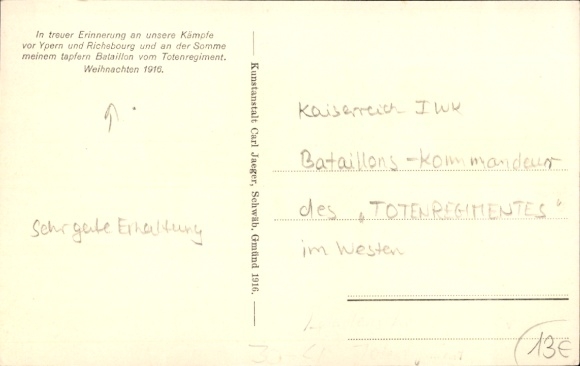 In treuer Erinnerung an unsere Kämpfe
vor Ypern und Richebourg und an der Somme
meinem tapfern Bataillon vom Totenregiment.
Weihnachten 1916.
Sehr gute Erhaltung
Kunstanstalt Carl Jaeger, Schwäb. Gmünd 1916.
Kaiserreich I WK
Bataillons-Kommandeur
des „TOTENREGIMENTES“
im Westen
13€